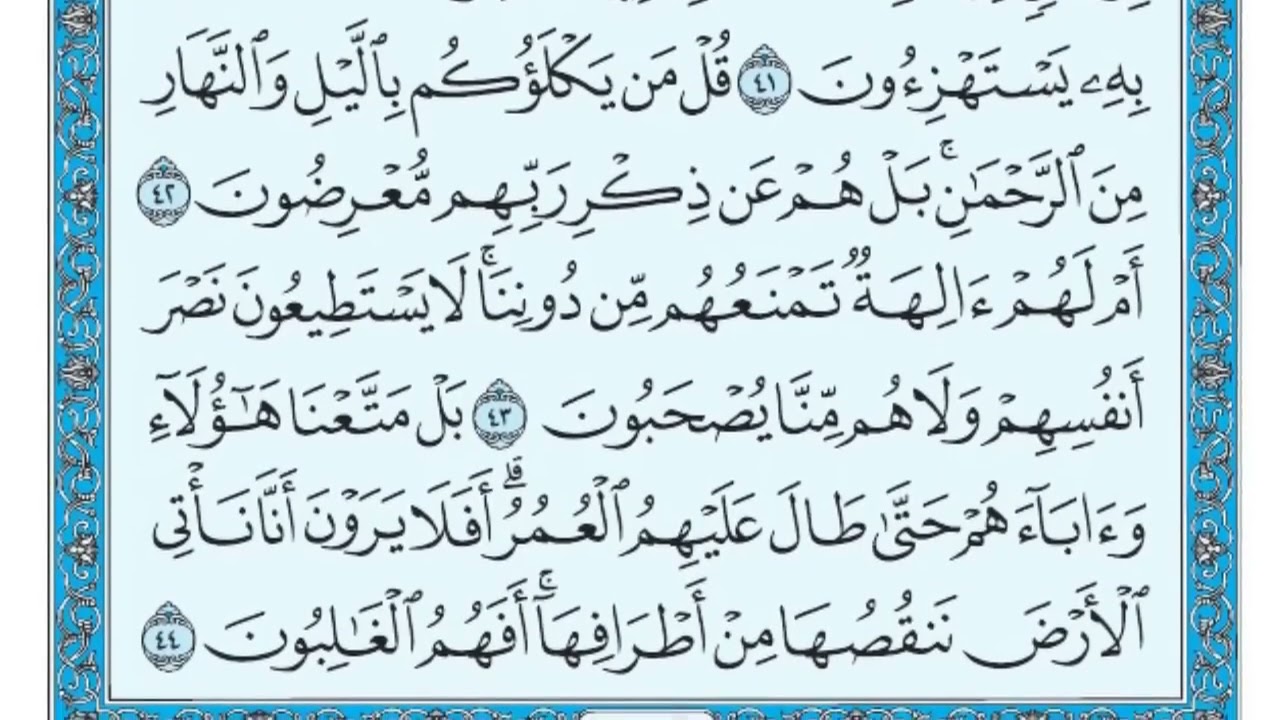 بِهِۦ يَسْتَهْزِءُونَ ٤١ قُلْ مَن يَكْلَؤُكُم بِٱلَّيْلِ وَٱلنَّهَارِ
مِنَ ٱلرَّحْمَٰنِۚ بَلْ هُمْ عَن ذِكْرِ رَبِّهِم مُّعْرِضُونَ ٤٢
أَمْ لَهُمْ ءَالِهَةٌ تَمْنَعُهُم مِّن دُونِنَاۚ لَا يَسْتَطِيعُونَ نَصْرَ
أَنفُسِهِمْ وَلَا هُم مِّنَّا يُصْحَبُونَ ٤٣ بَلْ مَتَّعْنَا هَٰٓؤُلَآءِ
وَءَابَآءَهُمْ حَتَّىٰ طَالَ عَلَيْهِمُ ٱلْعُمُرُۗ أَفَلَا يَرَوْنَ أَنَّا نَأْتِى
ٱلْأَرْضَ نَنقُصُهَا مِنْ أَطْرَافِهَآۚ أَفَهُمُ ٱلْغَٰلِبُونَ ٤٤